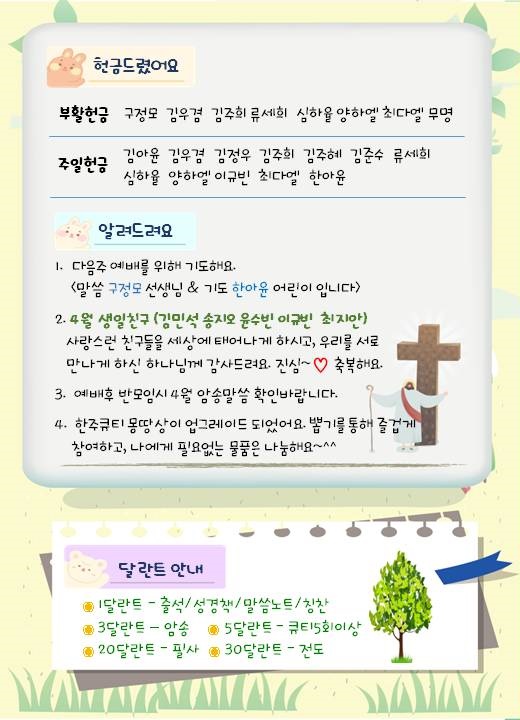 헌금드렸어요
부활헌금 구정모 김우겸 김주희 류세희 심하율 양하엘 최다엘 무명
주일헌금 김아윤 김우겸 김정우 김주희 김주혜 김준수 류세희
심하율 양하엘 이규빈 최다엘 한아윤
알려드려요
1. 다음주 예배를 위해 기도해요.
<말씀 구정모 선생님 & 기도 한아윤 어린이 입니다>
2. 4월 생일친구 (김민석 송지오 윤수빈 이규빈 최지안)
사랑스런 친구들을 세상에 태어나게 하시고, 우리를 서로
만나게 하신 하나님께 감사드려요. 진심~♡ 축복해요.
3. 예배후 반모임시 4월 암송말씀 확인바랍니다.
4. 한주큐티 몽땅상이 업그레이드 되었어요. 뽑기를통해 즐겁게
참여하고, 나에게 필요없는 물품은 나눔해요~^^
달란트 안내
1달란트 - 출석/성경책/말씀노트/칭찬
3달란트 - 암송 5달란트 - 큐티5회이상
20달란트 - 필사 30달란트 - 전도